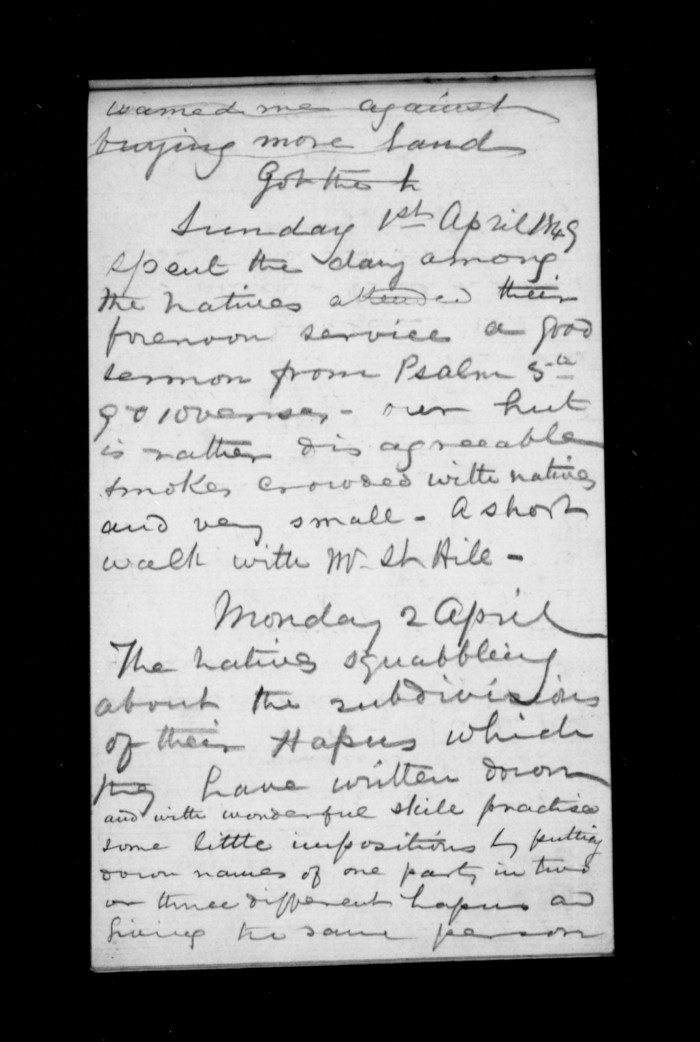 warned me against
buying more land
Got the h
Sunday 1st April 1849
spent the day among
the natives attended their
forenoon service a good
sermon from Psalm 5th
9 & 10 verses - our hut
is rather disagreeable
smokes crowded with natives
and very small - A short
walk with Mr St Hill -
Monday 2 April
The natives squabbling
about the subdivisions
of their Hapus which
they have written down
and with wonderful skill practise
some little impositions by putting
down names of one party in two
or three different hapus and
giving the same person